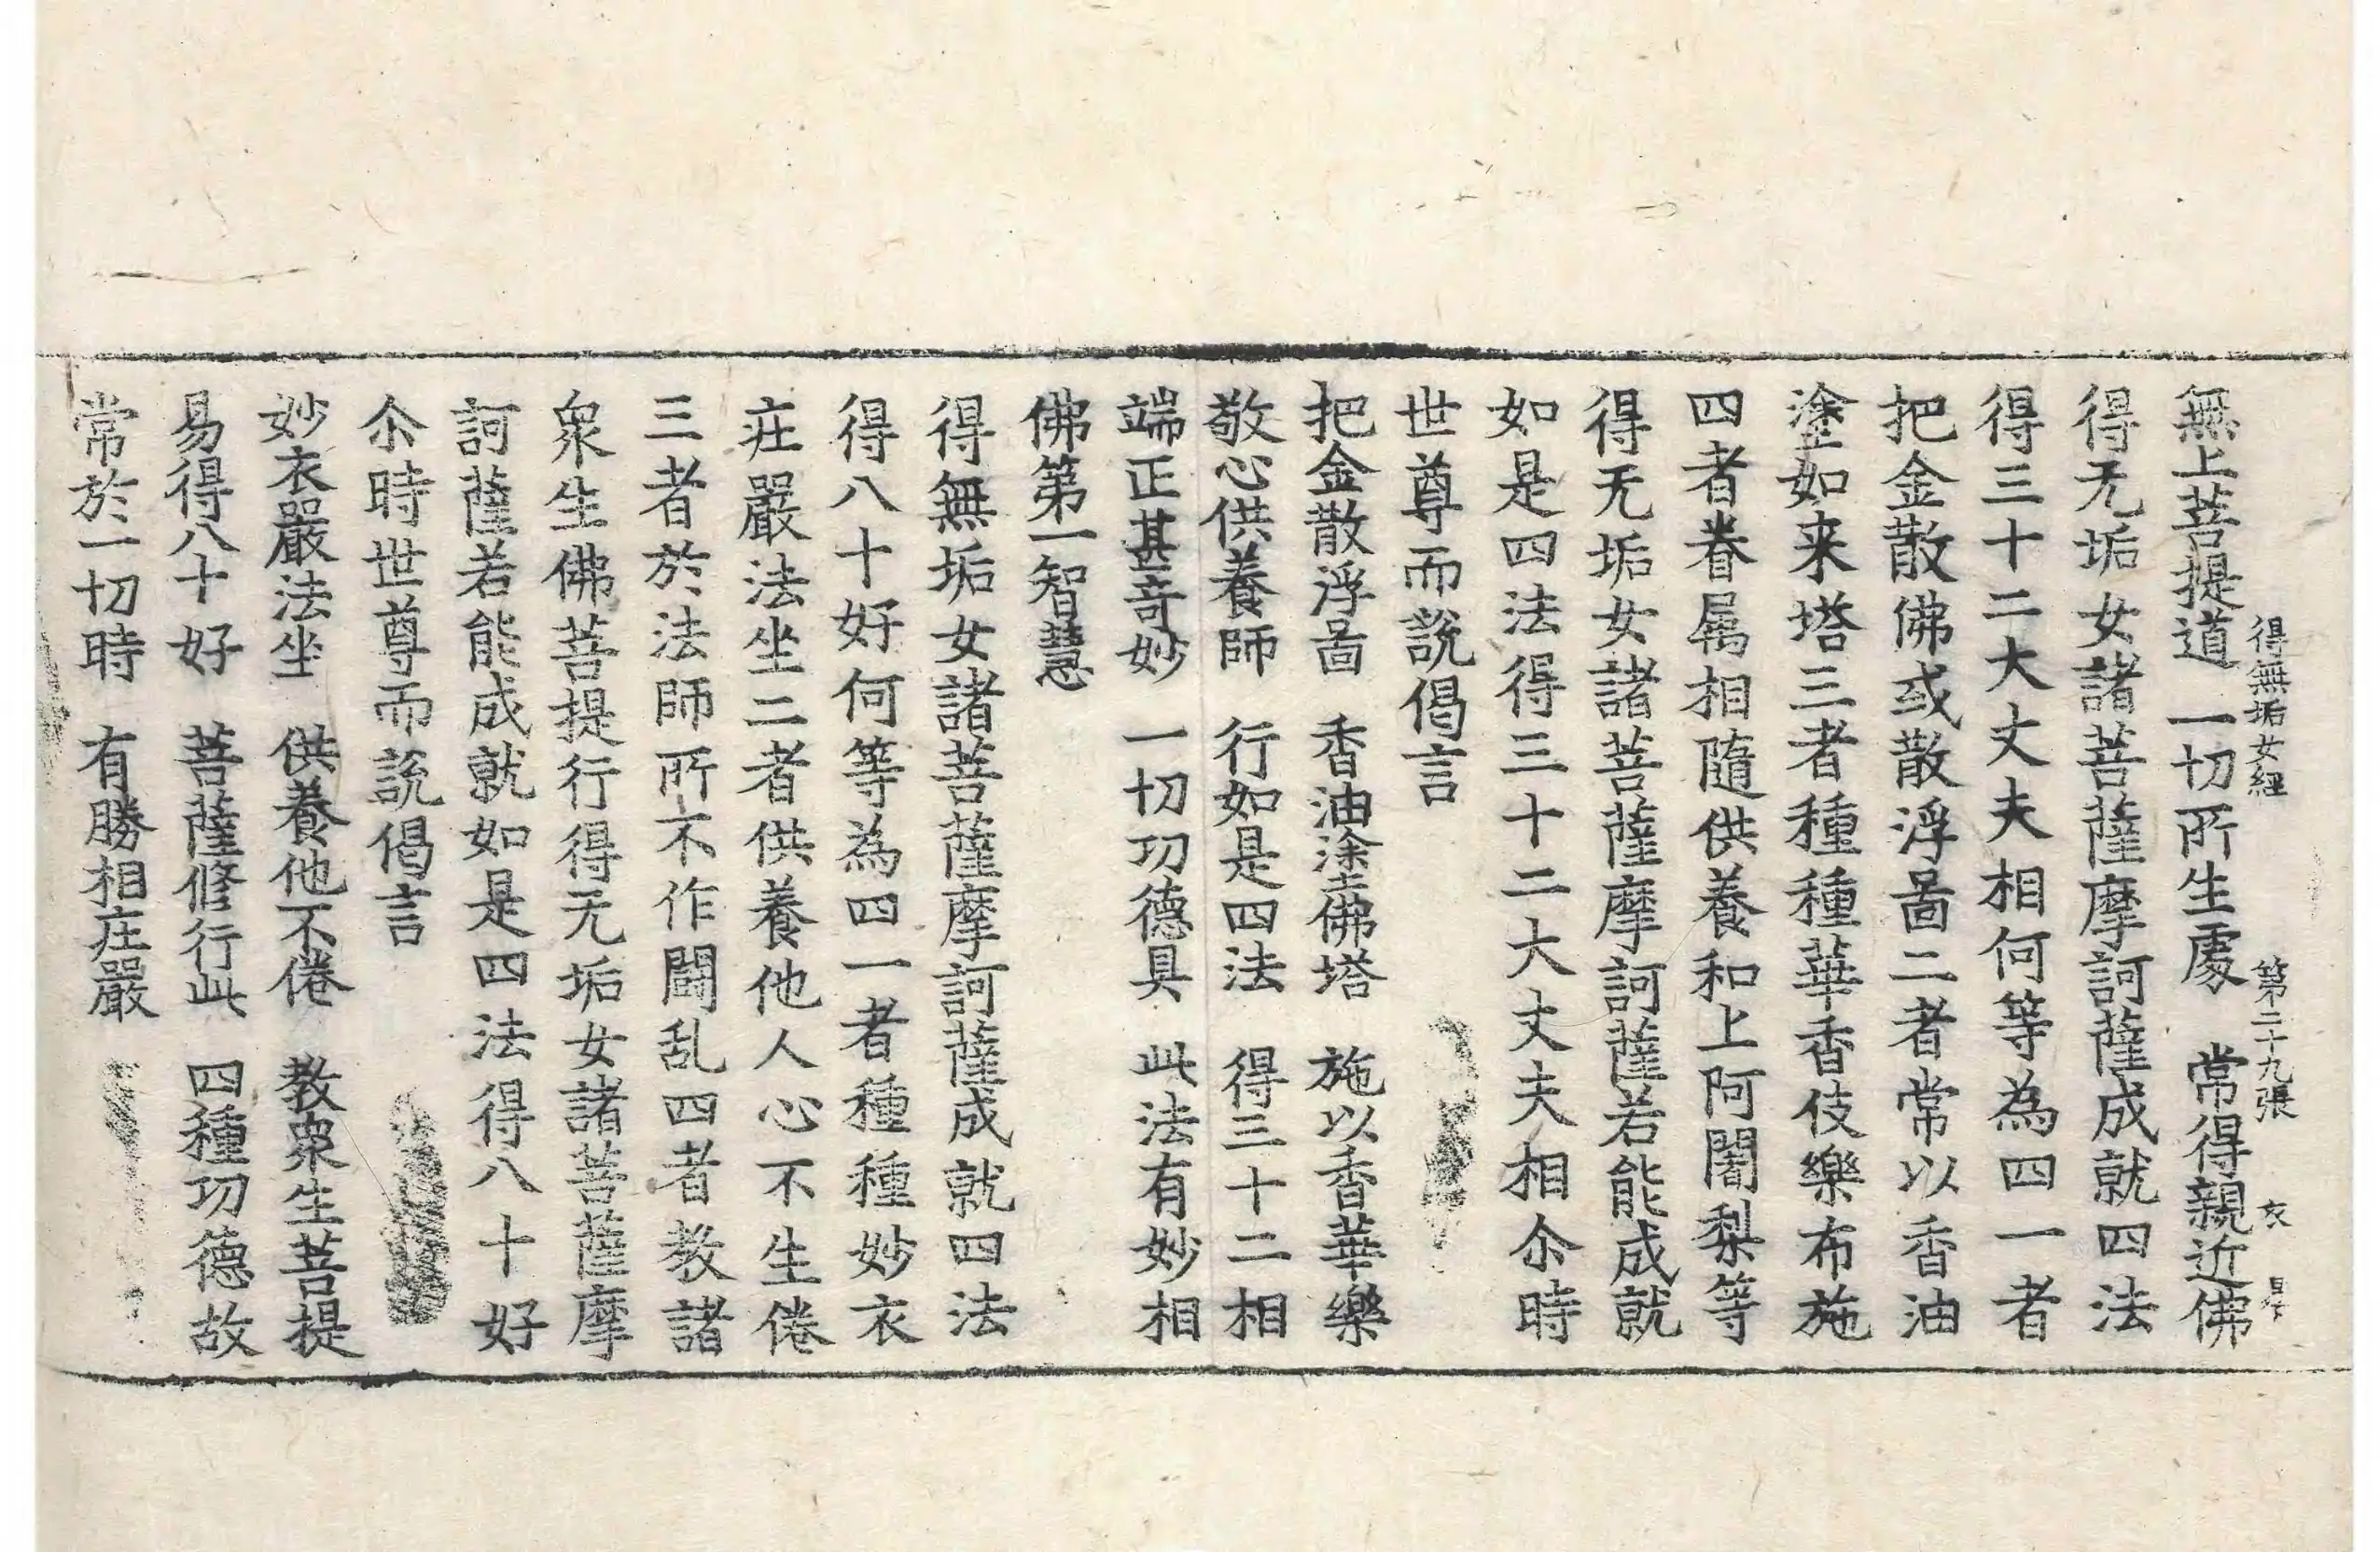 得無垢女經 第二十九張 衣
無上菩提道 一切所生處 常得親近佛
得无垢女諸菩薩摩訶薩成就四法
得三十二大丈夫相何等為四一者
把金散佛或散浮啚二者常以香油
塗如来塔三者種種華香伎樂布施
四者眷属相隨供養和上阿闍梨等
得无垢女諸菩薩摩訶薩若能成就
如是四法得三十二大丈夫相尒時
世尊而說偈言
把金散浮啚 香油塗佛塔 施以香華樂
敬心供養師 行如是四法 得三十二相
端正甚奇妙 一切功德具 此法有妙相
佛第一智慧
得無垢女諸菩薩摩訶薩成就四法
得八十好何等為四一者種種妙衣
莊嚴法坐二者供養他人心不生倦
三者於法師所不作鬪乱四者教諸
衆生佛菩提行得无垢女諸菩薩摩
訶薩若能成就如是四法得八十好
尒時世尊而說偈言
妙衣嚴法坐 供養他不倦 教衆生菩提
易得八十好 菩薩修行此 四種功德故
常於一切時 有勝相庄嚴